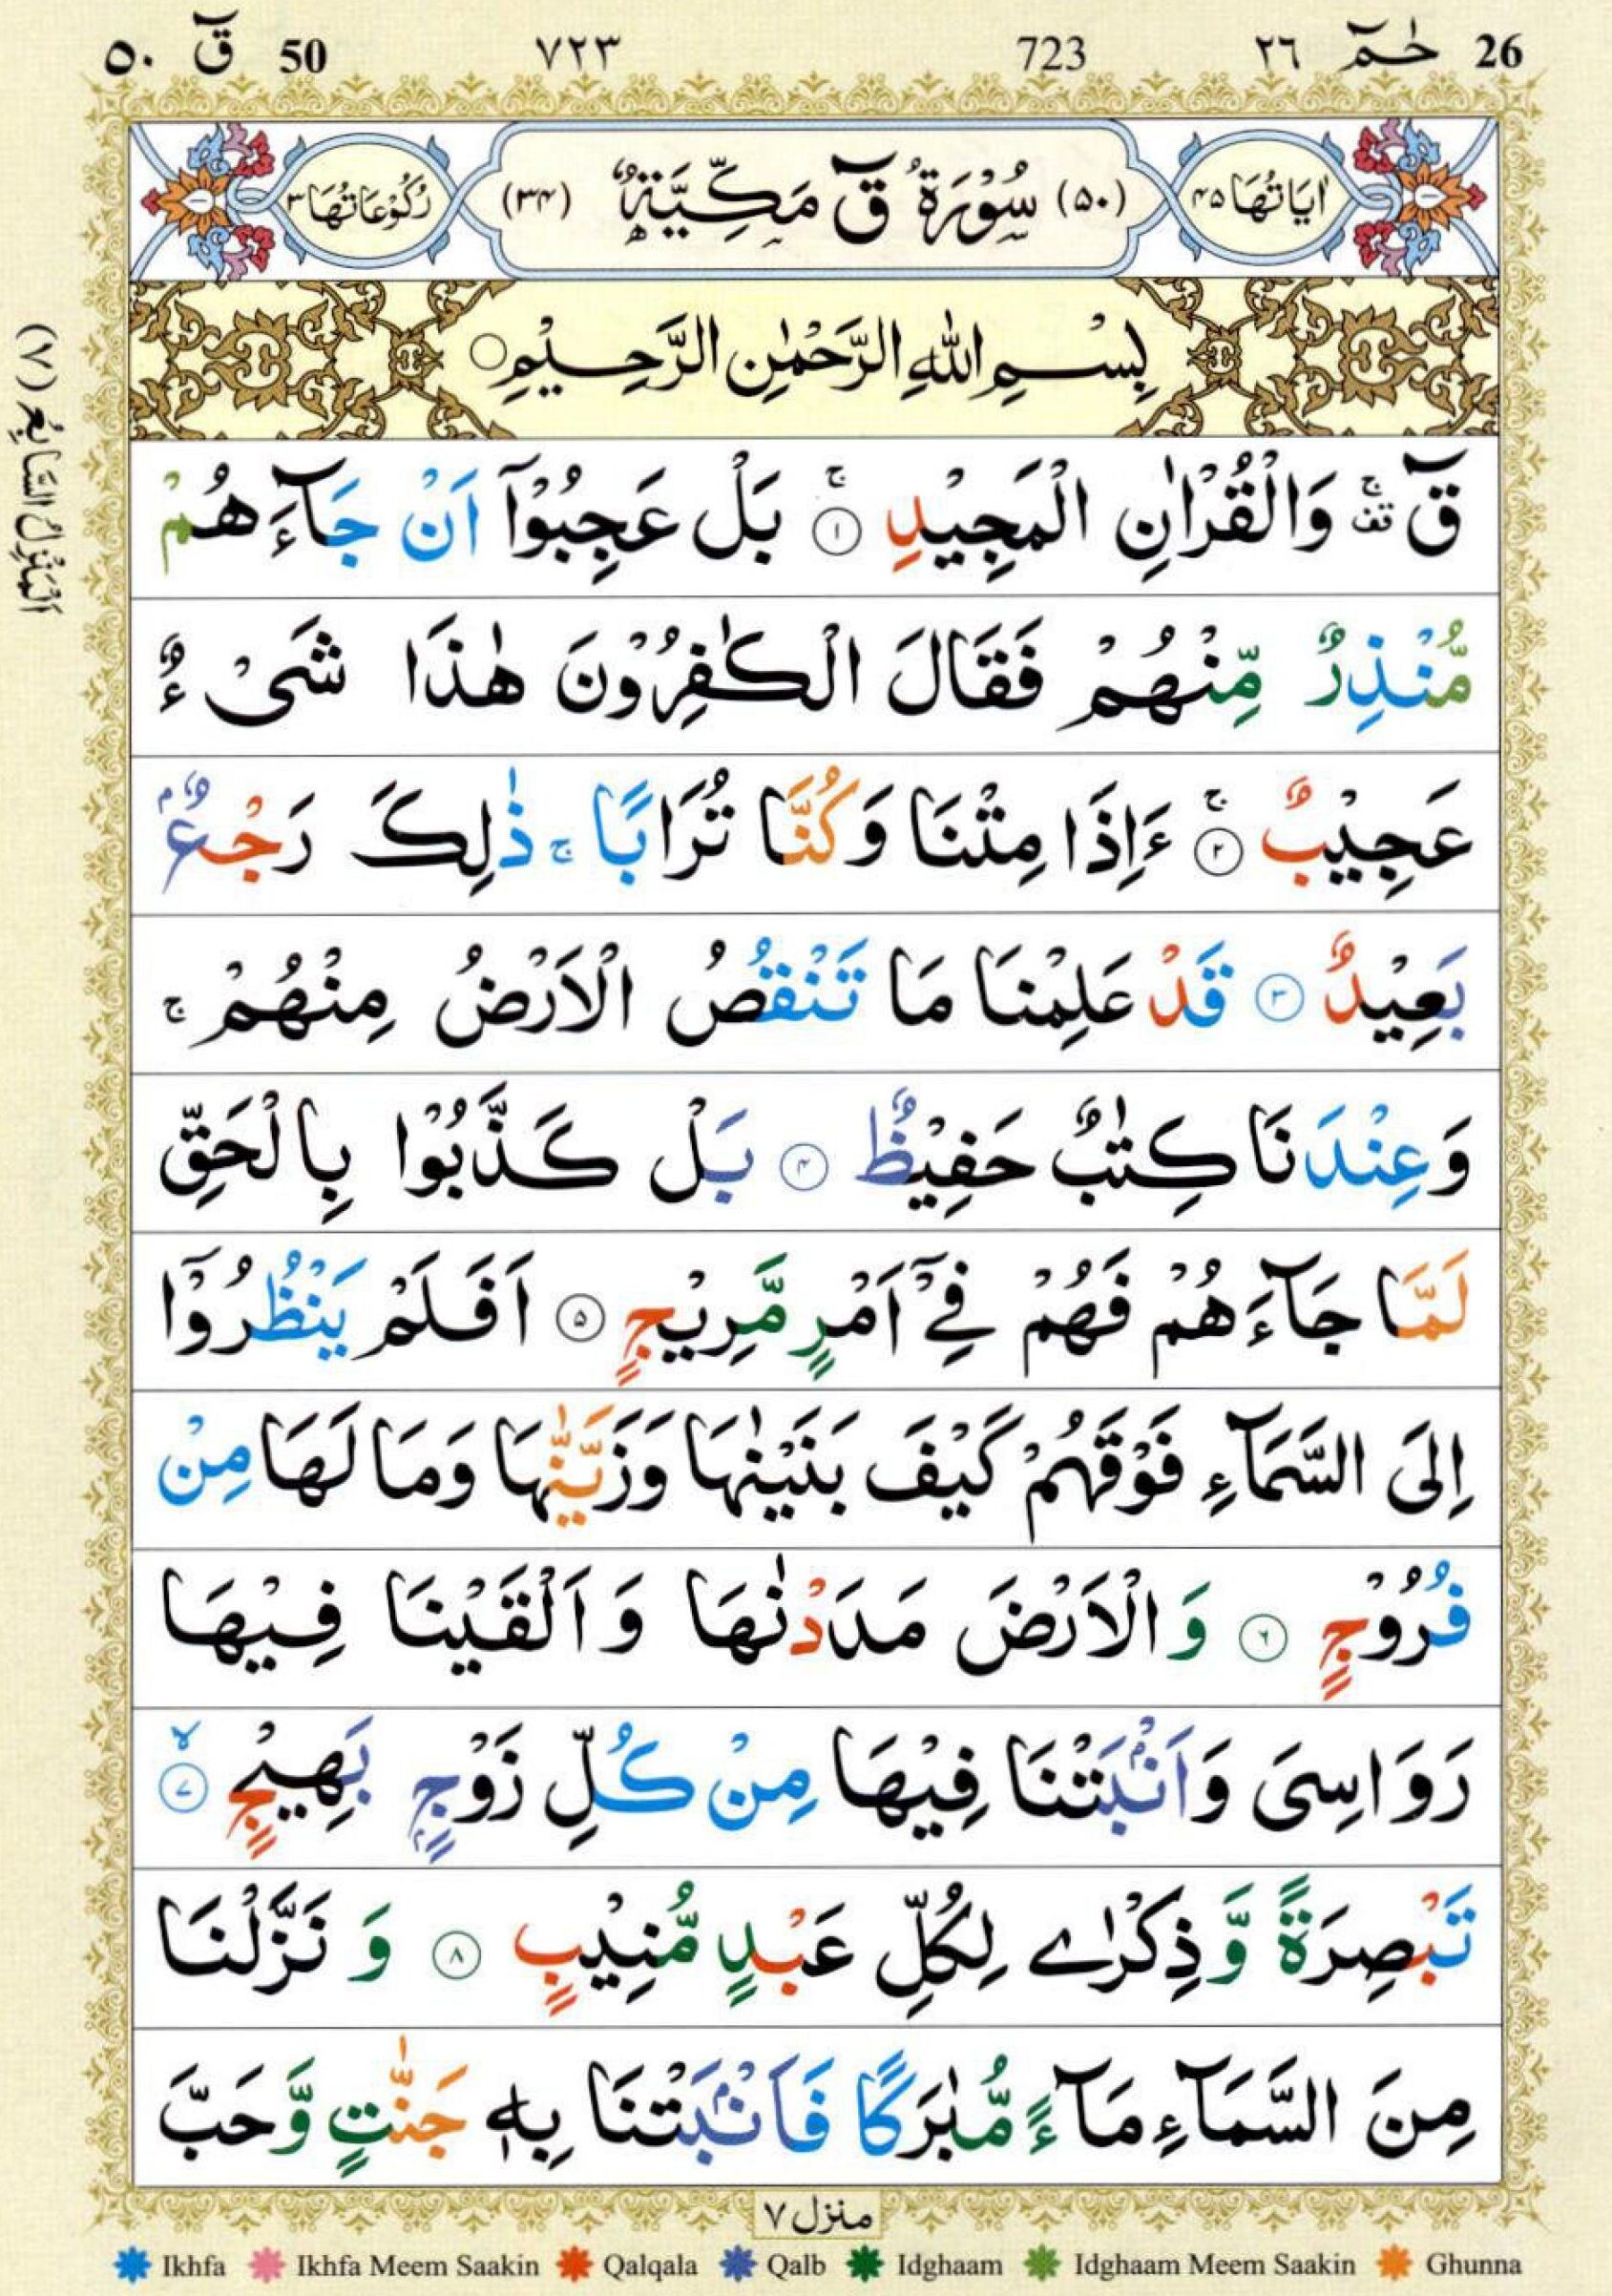 26 حٰمٓ ٢٦ 723 ٧٢٣ 50 قٓ ٥٠
اٰيَاتُهَا ٤٥ (٥٠) سُوْرَةُ قٓ مَكِّيَّةٌ (٣٤) رُكُوْعَاتُهَا ٣
بِسْمِ اللّٰهِ الرَّحْمٰنِ الرَّحِيْمِ
اَلْمَنْزِلُ السَّابِعُ (٧)
قٓ ۚ قف وَالْقُرْاٰنِ الْمَجِيْدِ ۚ ١ بَلْ عَجِبُوْۤا اَنْ جَآءَهُمْ
مُّنْذِرٌ مِّنْهُمْ فَقَالَ الْكٰفِرُوْنَ هٰذَا شَىْءٌ
عَجِيْبٌ ۚ ٢ ءَاِذَا مِتْنَا وَكُنَّا تُرَابًا ۚ ذٰلِكَ رَجْعٌۢ
بَعِيْدٌ ٣ قَدْ عَلِمْنَا مَا تَنْقُصُ الْاَرْضُ مِنْهُمْ ۚ
وَعِنْدَنَا كِتٰبٌ حَفِيْظٌ ٤ بَلْ كَذَّبُوْا بِالْحَقِّ
لَمَّا جَآءَهُمْ فَهُمْ فِىْۤ اَمْرٍ مَّرِيْجٍ ٥ اَفَلَمْ يَنْظُرُوْۤا
اِلَى السَّمَآءِ فَوْقَهُمْ كَيْفَ بَنَيْنٰهَا وَزَيَّنّٰهَا وَمَا لَهَا مِنْ
فُرُوْجٍ ٦ وَالْاَرْضَ مَدَدْنٰهَا وَاَلْقَيْنَا فِيْهَا
رَوَاسِىَ وَاَنْۢبَتْنَا فِيْهَا مِنْ كُلِّ زَوْجٍۢ بَهِيْجٍ ۙ ٧
تَبْصِرَةً وَّذِكْرٰى لِكُلِّ عَبْدٍ مُّنِيْبٍ ٨ وَنَزَّلْنَا
مِنَ السَّمَآءِ مَآءً مُّبٰرَكًا فَاَنْۢبَتْنَا بِهٖ جَنّٰتٍ وَّحَبَّ
منزل ٧
Ikhfa Ikhfa Meem Saakin Qalqala Qalb Idghaam Idghaam Meem Saakin Ghunna